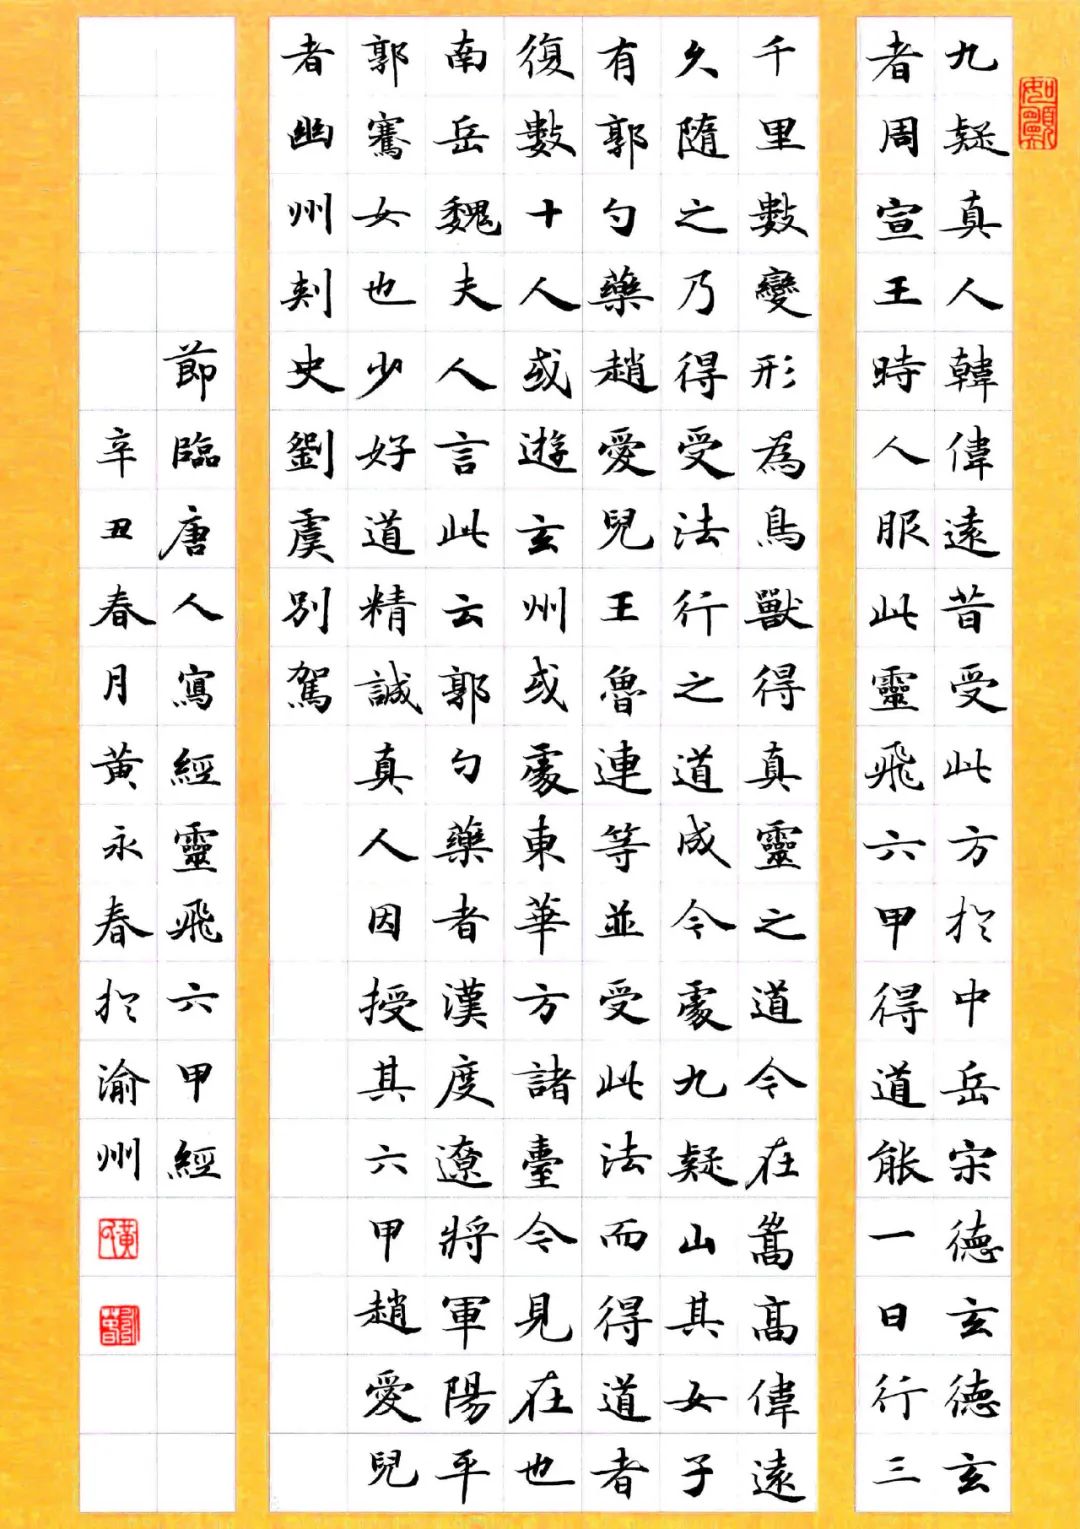 九疑真人韓偉遠昔受此方於中岳宋德玄德玄
者周宣王時人服此靈飛六甲得道能一日行三
千里數變形為鳥獸得真靈之道今在嵩高偉遠
久隨之乃得受法行之道成今處九疑山其女子
有郭勺藥趙愛兒王魯連等並受此法而得道者
復數十人或遊玄州或處東華方諸臺今見在也
南岳魏夫人言此云郭勺藥者漢度遼將軍陽平
郭騫女也少好道精誠真人因授其六甲趙愛兒
者幽州刾史劉虞別駕
節臨唐人寫經靈飛六甲經
辛丑春月黃永春於渝州